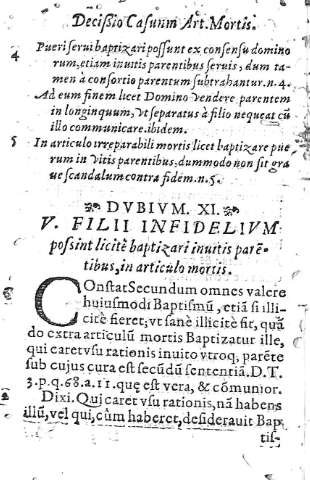 Decißio Casuum Art. Mortis.
4 Pueri serui baptizari possunt ex consensu domino
rum, etiam inuitis parentibus seruis; dum ta-
men à consortio parentum subtrahantur. n. 4.
Ad eum finem licet Domino vendere parentem
in longinquum, vt separatus à filio nequeat cū
illo communicare. ibidem.
5 In articulo irreparabili mortis licet baptizare pue
rum in vitis parentibus; dummodo non sit gra
ue scandalum contra fidem. n. 5.
DVBIVM. XI.
V. FILII INFIDELIVM
possint licitè baptizari inuitis parē-
tibus, in articulo mortis.
COnstat Secundum omnes valere
huiusmodi Baptismū, etiā si illi-
cite fieret; vt sanè illicitè fit, quā
do extra articulū mortis Baptizatur ille,
qui caret vsu rationis inuito vtroq; parēte
sub cujus cura est secūdū sententiā. D. T.
3. p. q. 68. a. 11. quę est vera, & cōmunior.
Dixi. Qui caret vsu rationis, nā habens
illū, vel qui, cùm haberet, desiderauit Bap
tis-